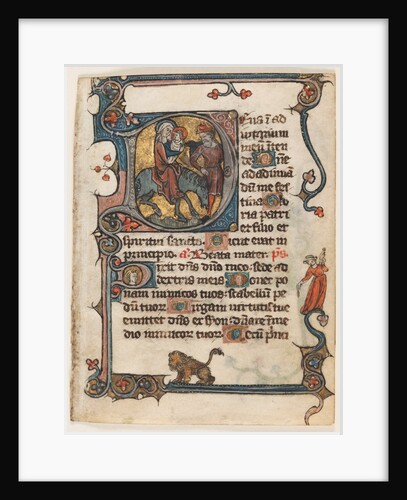 Deus ī ad
iutorium
meū īten
de Dñe
ad adiuuā
dū me fes
tina Glo
ria patri
et filio et
spiritui sancto. Sicut erat in
principio. a. Beata mater. ps.
Dixit dñs dño meo: sede ad
dextris meis Donec po
nam inimicos tuos: scabellum pe
dū tuoꝝ Virgam uirtutis tue
emittet dñs ex syon: dñare ī me
dio inimicoꝝ tuoꝝ Tecum p̃nci